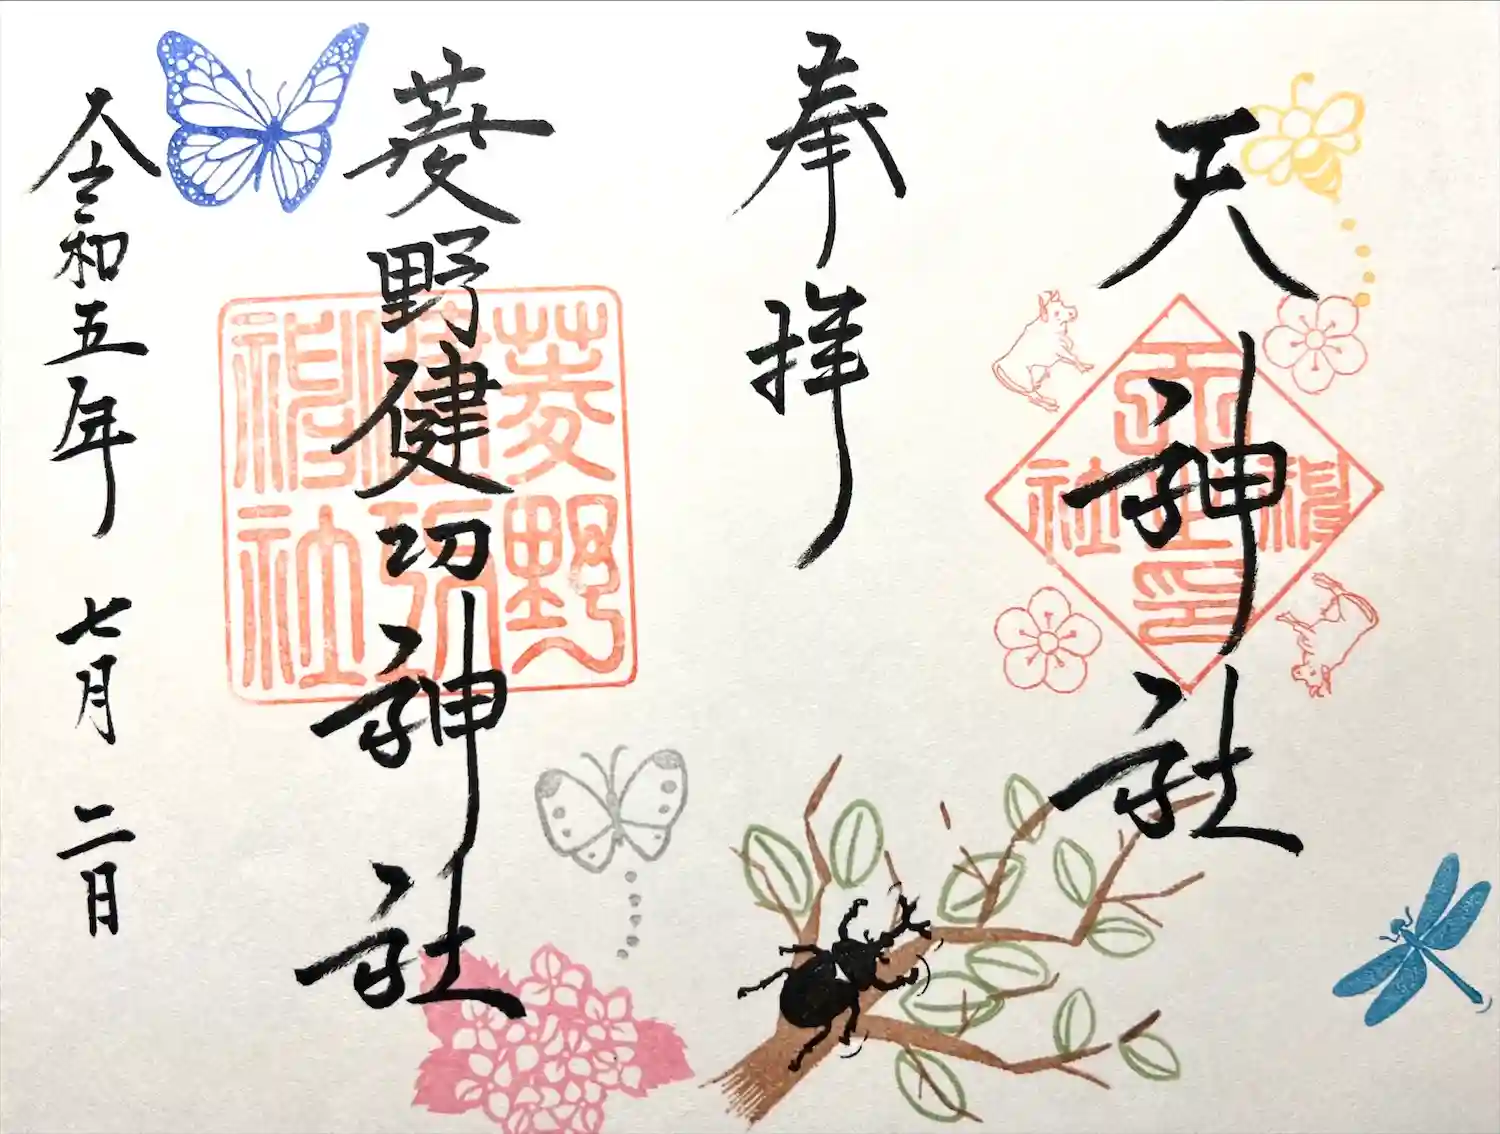 天神社
天神社之印
奉拝
菱野健功神社
菱野
健功
神社
令和五年 七月二日